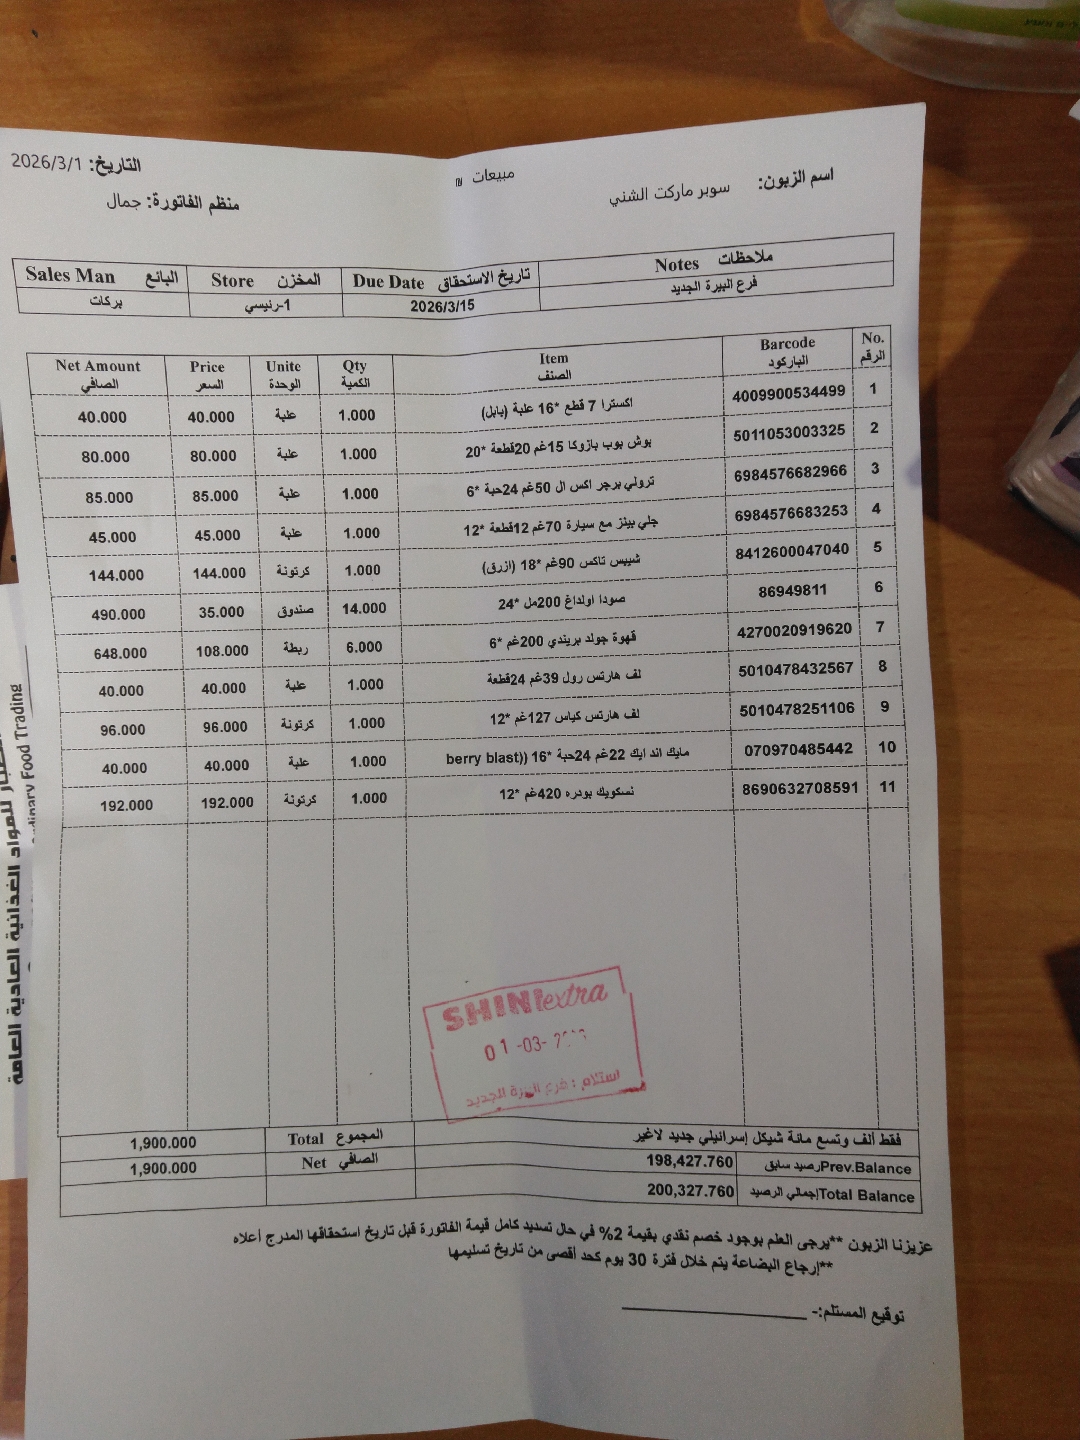 اسم الزبون: سوبر ماركت الشني
مبيعات ₪
التاريخ: 2026/3/1
منظم الفاتورة: جمال
ملاحظات Notes | تاريخ الاستحقاق Due Date | المخزن Store | البائع Sales Man
فرع البيرة الجديد | 2026/3/15 | 1-رئيسي | بركات
No. الرقم | Barcode الباركود | Item الصنف | Qty الكمية | Unite الوحدة | Price السعر | Net Amount الصافي
1 | 4009900534499 | اكسترا 7 قطع *16 علبة (بابل) | 1.000 | علبة | 40.000 | 40.000
2 | 5011053003325 | بوش بوب بازوكا 15غم 20قطعة *20 | 1.000 | علبة | 80.000 | 80.000
3 | 6984576682966 | ترولي برجر اكس ال 50غم 24حبة *6 | 1.000 | علبة | 85.000 | 85.000
4 | 6984576683253 | جلي بينز مع سيارة 70غم 12قطعة *12 | 1.000 | علبة | 45.000 | 45.000
5 | 8412600047040 | شيبس تاكس 90غم *18 (ازرق) | 1.000 | كرتونة | 144.000 | 144.000
6 | 86949811 | صودا اولداغ 200مل *24 | 14.000 | صندوق | 35.000 | 490.000
7 | 4270020919620 | قهوة جولد بريندي 200غم *6 | 6.000 | ربطة | 108.000 | 648.000
8 | 5010478432567 | لف هارتس رول 39غم 24قطعة | 1.000 | علبة | 40.000 | 40.000
9 | 5010478251106 | لف هارتس كياس 127غم *12 | 1.000 | كرتونة | 96.000 | 96.000
10 | 070970485442 | مايك اند ايك 22غم 24حبة *16 ((berry blast | 1.000 | علبة | 40.000 | 40.000
11 | 8690632708591 | نسكويك بودره 420غم *12 | 1.000 | كرتونة | 192.000 | 192.000
SHINI extra
01-03-
استلام : فرع البيرة الجديد
فقط ألف وتسع مائة شيكل إسرائيلي جديد لاغير | المجموع Total | 1,900.000
Prev.Balance رصيد سابق | 198,427.760 | الصافي Net | 1,900.000
Total Balance إجمالي الرصيد | 200,327.760
عزيزنا الزبون **يرجى العلم بوجود خصم نقدي بقيمة 2% في حال تسديد كامل قيمة الفاتورة قبل تاريخ استحقاقها المدرج أعلاه
**إرجاع البضاعة يتم خلال فترة 30 يوم كحد أقصى من تاريخ تسليمها
توقيع المستلم:-
للمواد الغذائية العادية العامة
Food Trading